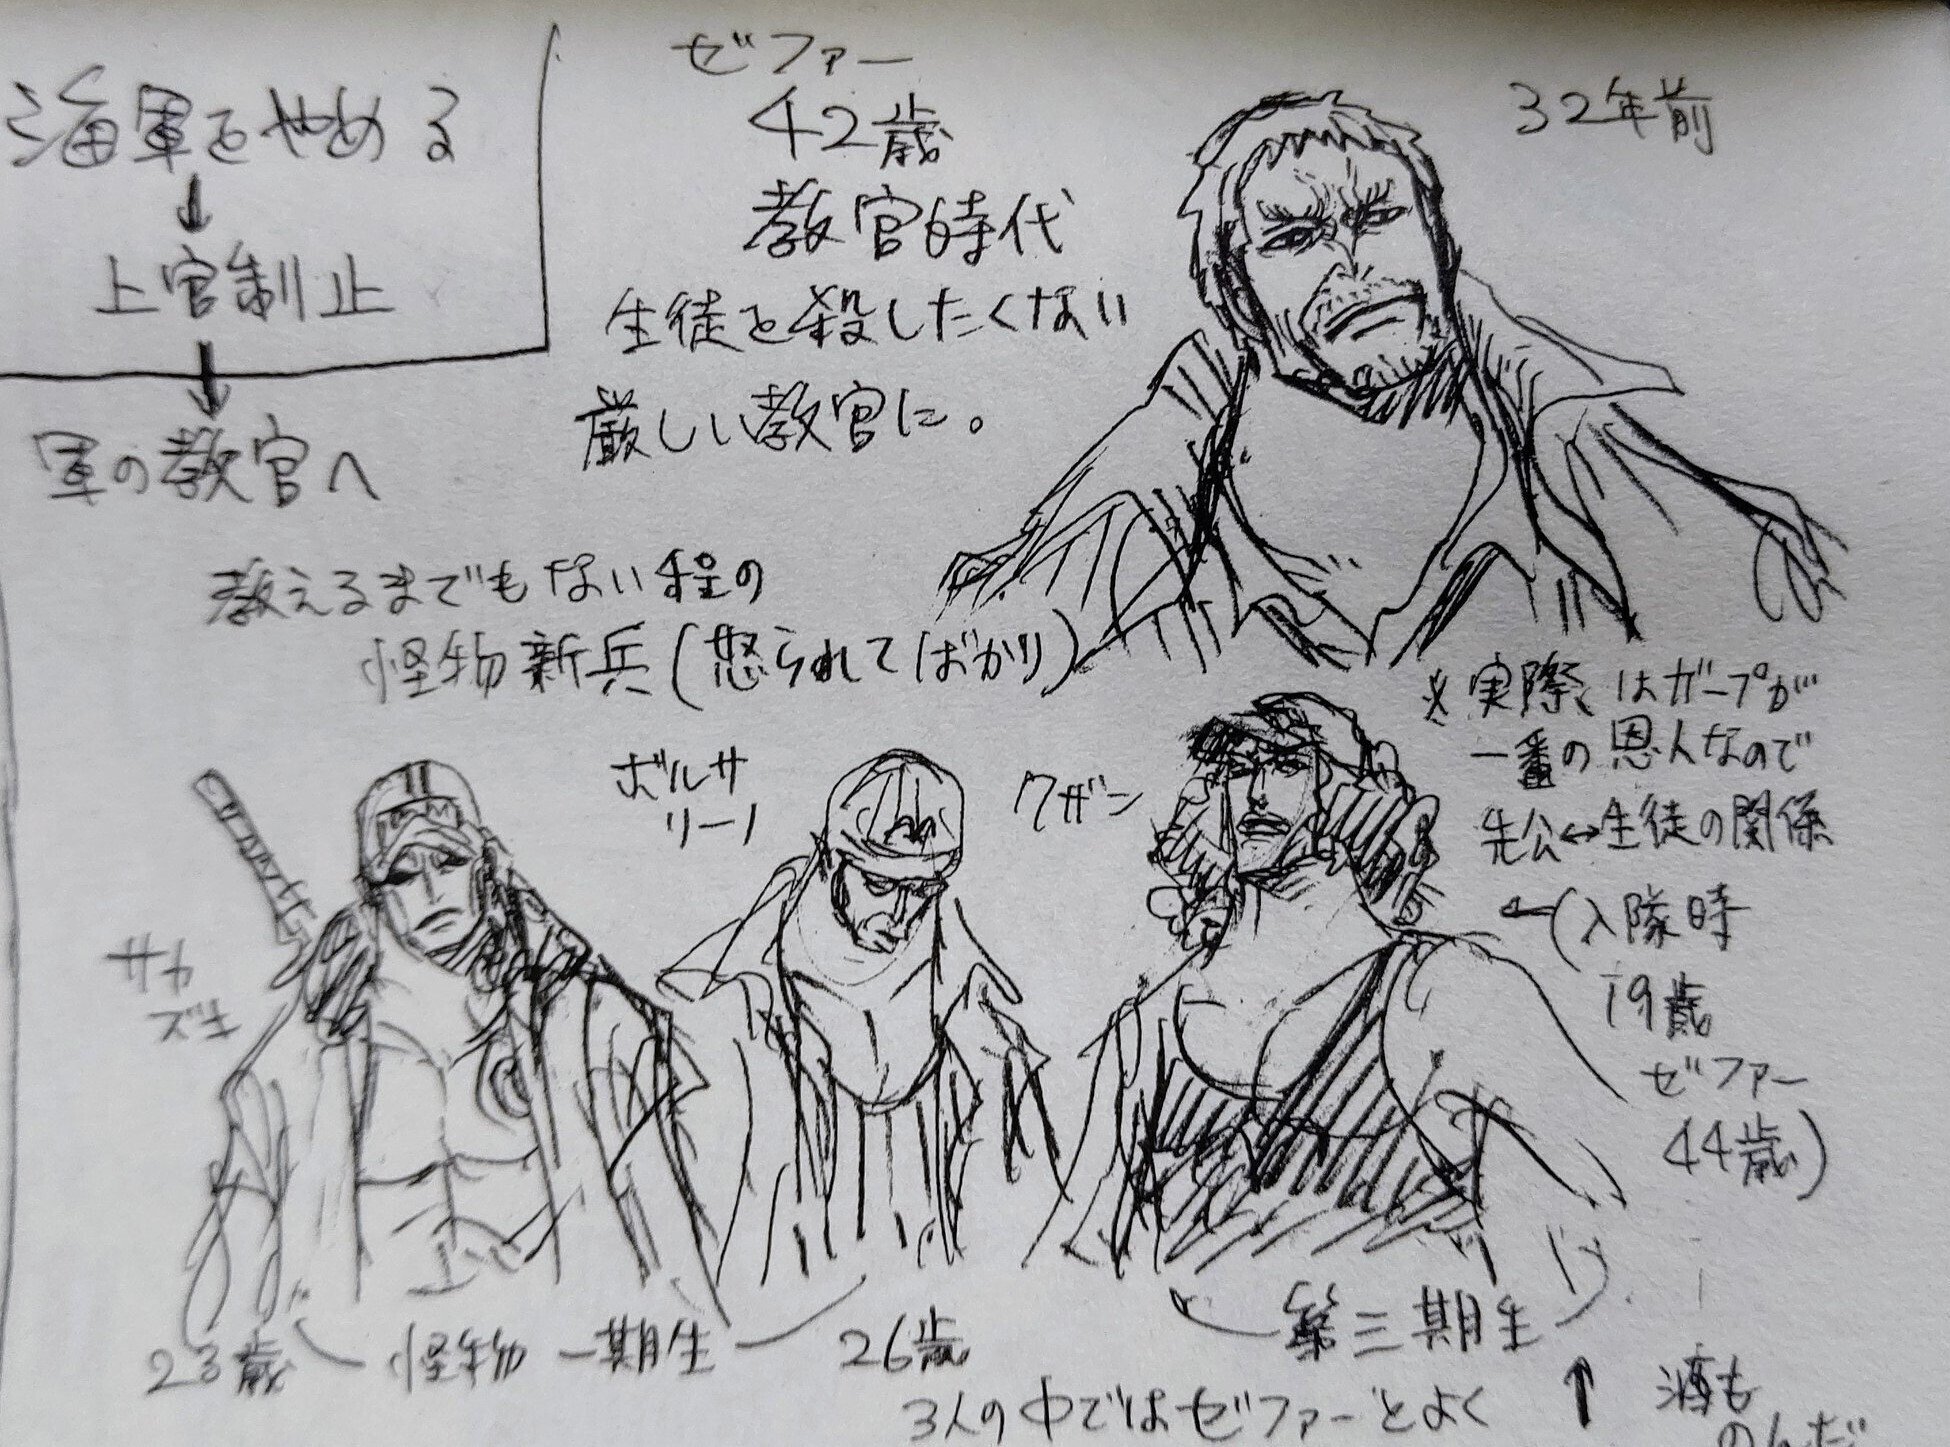 海軍をやめる
↓
上官制止
↓
軍の教官へ
ゼファー
42歳
教官時代
生徒を殺したくない
厳しい教官に。
32年前
教えるまでもない程の
怪物新兵(怒られてばかり)
※実際はガープが
一番の恩人なので
先公↔生徒の関係
←(入隊時
19歳
ゼファー
44歳)
サカ
ズキ
ボルサ
リーノ
クザン
23歳
怪物一期生
26歳
第三期生
↑
3人の中ではゼファーとよく
酒も
のんだ